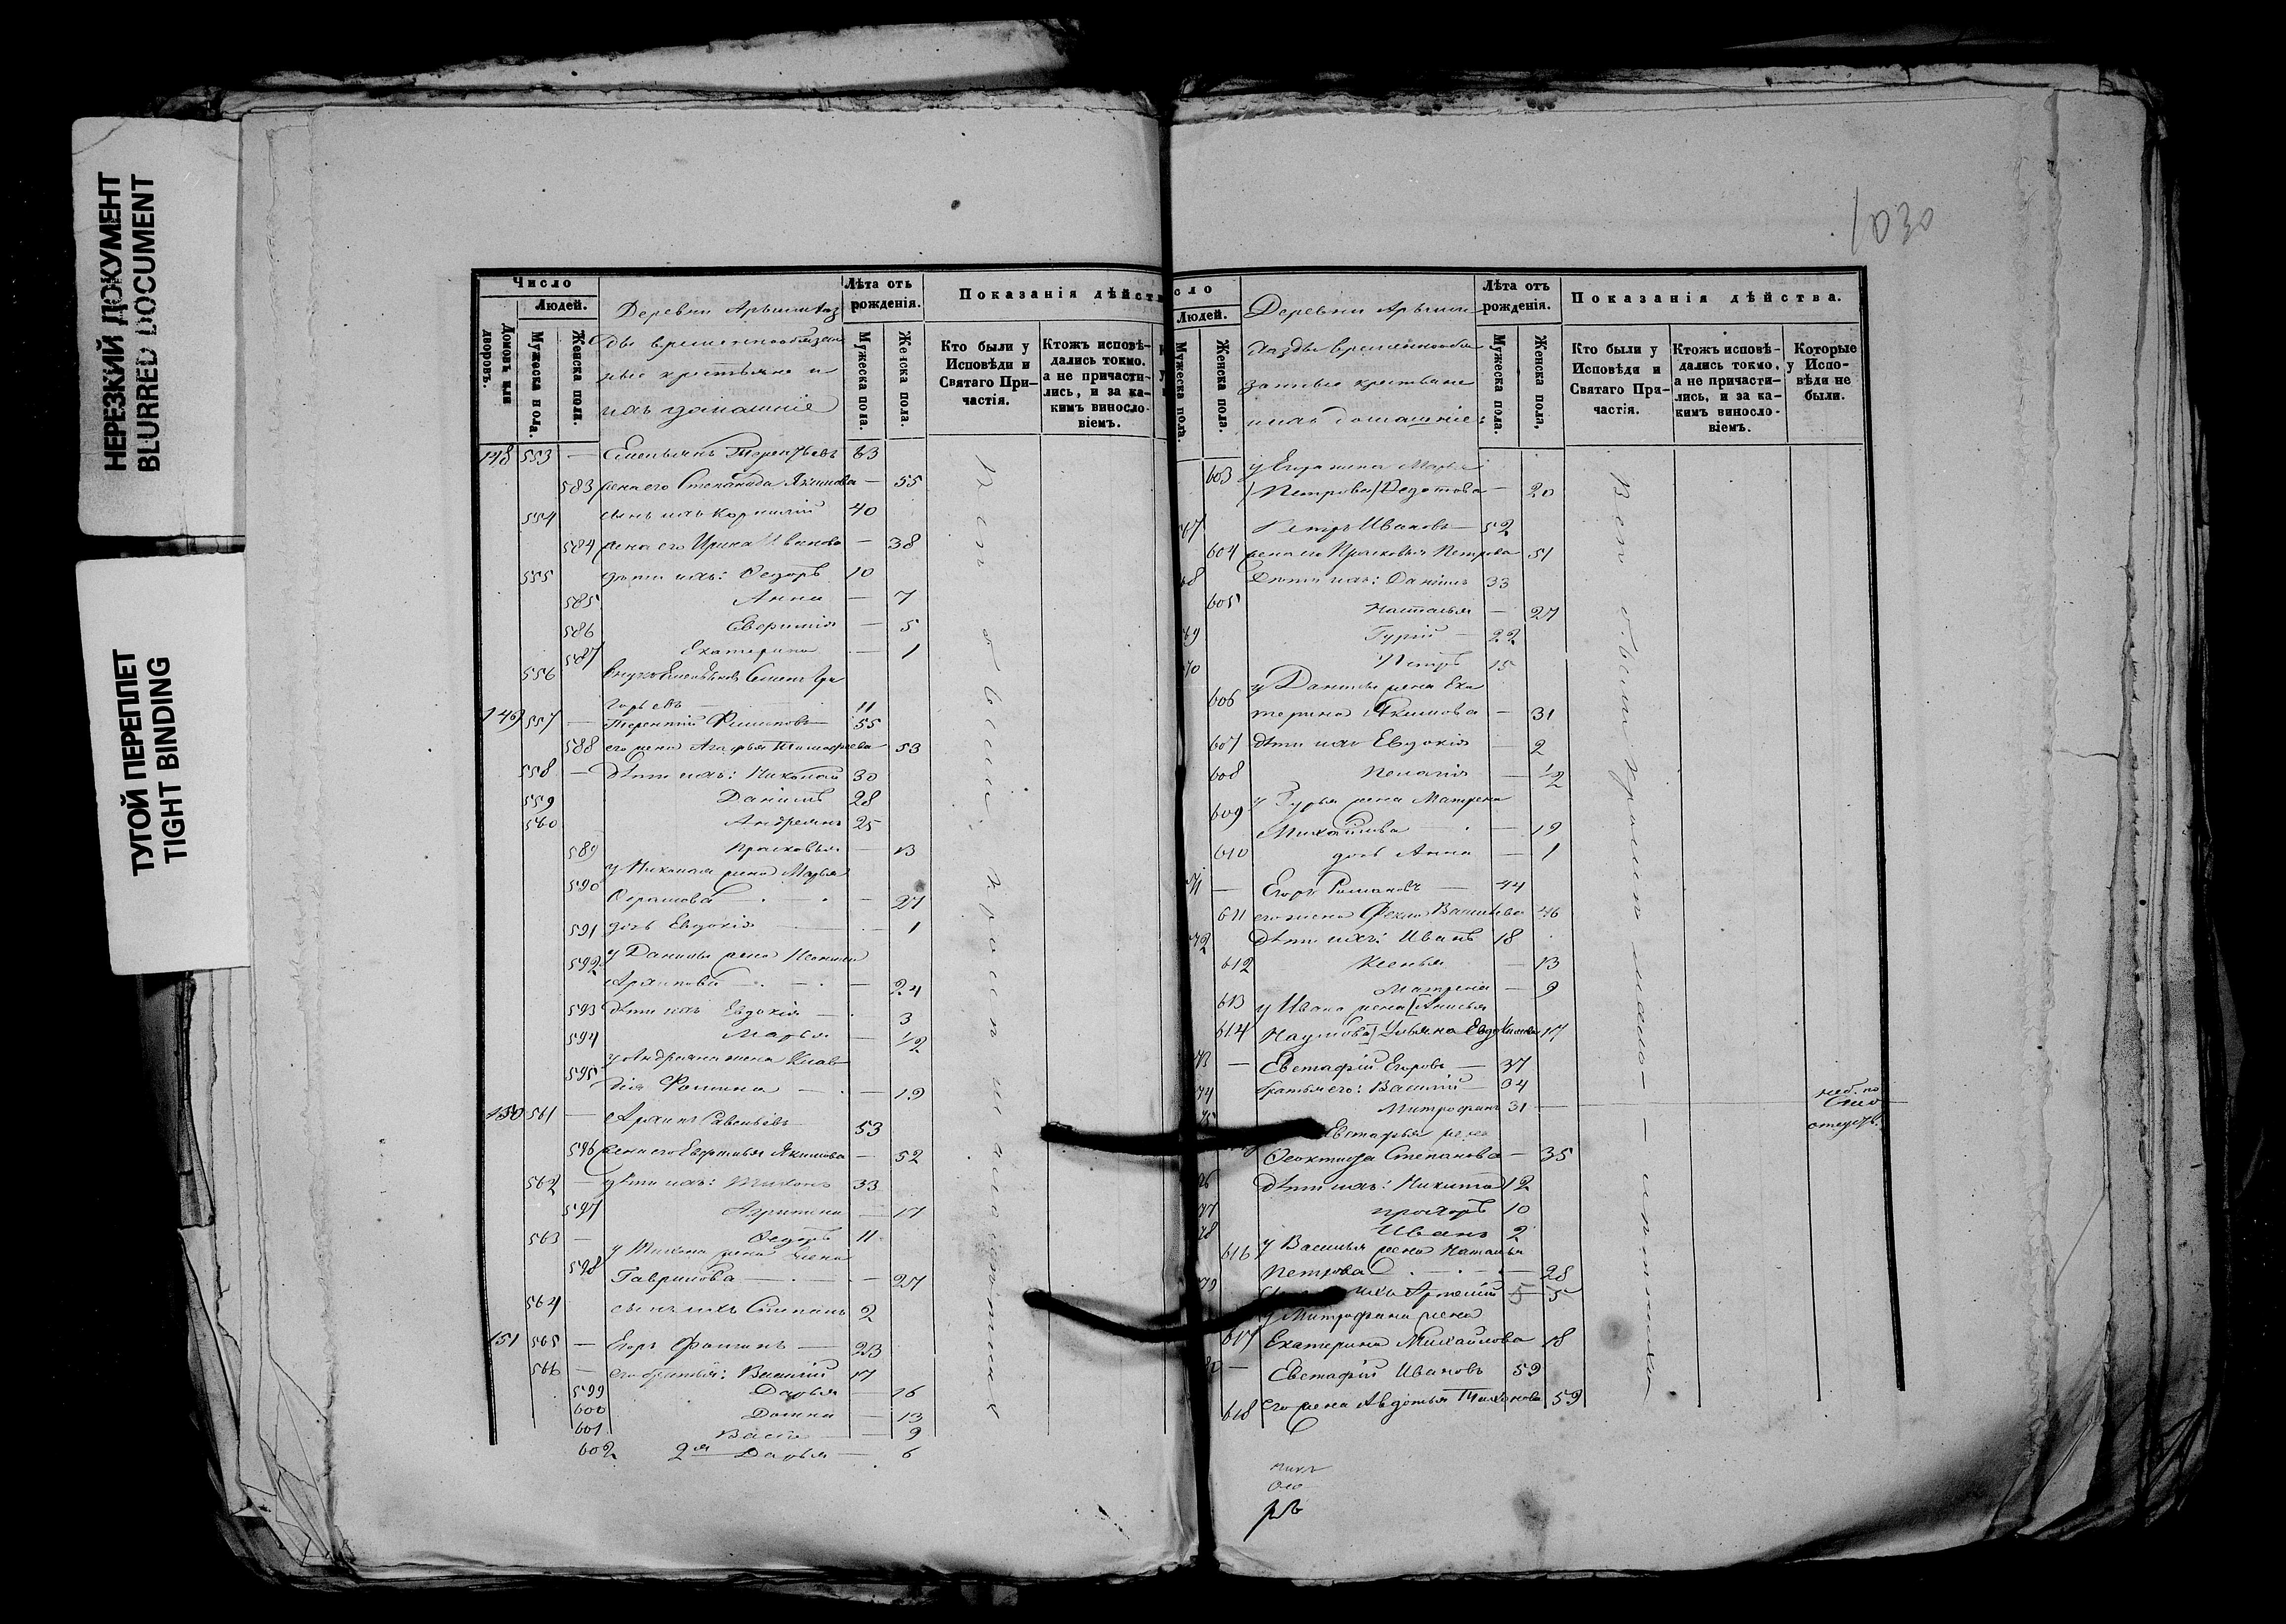 НЕРЕЗКИЙ ДОКУМЕНТ
BLURRED DOCUMENT
ТУГОЙ ПЕРЕПЛЕТ
TIGHT BINDING
Число
Людей.
Домовъ или дворовъ.
Мужеска пола.
Женска пола.
Деревни
временнообязан
ные крестьяне и
ихъ домашніе
Лѣта отъ рожденія.
Мужеска пола.
Женска пола.
Показанія дѣйст
Кто были у Исповѣди и Святаго Причастія.
Ктожъ исповѣдались токмо, а не причастились, и за какимъ винословіемъ.
148 553 — Емельянъ Терентьевъ 63
583 жена его Степанида Якимова — 55
554 сынъ ихъ Корнилій 40
584 жена его Ирина Иванова — 38
555 дѣти ихъ: Ѳедоръ 10
585 Анна — 7
586 Евфимія — 5
587 Екатерина — 1
556 внукъ Емельяновъ Семенъ Гри
горьевъ — 11
149 557 — Терентій Филиповъ 55
588 его жена Агафья Тимофеева 53
558 — дѣти ихъ: Николай 30
559 Даніилъ 28
560 Андреянъ 25
589 Прасковья — 13
590 у Николая жена Марья
— 27
591 дочь Евдокія — 1
592 у Данилы жена
Архипова — 24
593 дѣти ихъ Евдокія — 3
594 Марья — 1/2
595 у Андреяна жена Клав
дія Фомина — 19
150 561 — Архипъ Савельевъ 53
596 жена его Евфимья Якимова — 52
562 — дѣти ихъ: Тихонъ 33
597 Агрипина — 17
563 — Ѳедоръ 11
598 у Тихона жена Елена
Гаврилова — 27
564 сынъ ихъ Степанъ 2
151 565 — Егоръ Фоминъ — 23
566 — его братья: Василій 17
599 Дарья — 16
600 Домна — 13
601 Васса — 9
602 2я Дарья — 6
1030
сло
Людей.
Мужеска пола.
Женска пола.
Деревни
временнообя
занные крестьяне
и ихъ домашніе:
Лѣта отъ рожденія.
Мужеска пола.
Женска пола,
Показанія дѣйства.
Кто были у Исповѣди и Святаго Причастія.
Ктожъ исповѣдались токмо, а не причастились, и за какимъ винословіемъ.
Которые у Исповѣди не были.
603 у Егора жена Марья
(Петрова) Федотова — 20
67 Петръ Ивановъ — 52
604 жена его Прасковья Петрова 51
68 Дѣти ихъ: Даніилъ 33
605 Наталья — 27
69 Гурій — 22
70 Петръ 15
606 у Данилы жена Ека
терина Якимова — 31
607 дѣти ихъ Евдокія — 2
608 Пелагія — 1/2
609 у Гурья жена Матрена
Михайлова — 19
610 дочь Анна — 1
71 — Егоръ Романовъ — 44
611 его жена Фекла Васильева 46
72 дѣти ихъ: Иванъ 18
612 Ксенья — 13
613 Матрена — 9
у Ивана жена (Анисья
614 Наумова) Ульяна Евдокимова 17
73 — Евстафій Егоровъ — 37
74 братья его: Василій — 34
75 Митрофанъ 31
Евстафья жена
Ѳеоктиста Степанова — 35
76 дѣти ихъ: Никита 12
77 Прохоръ 10
78 Иванъ 2
616 у Василья жена Наталья
Петрова — 28
79 ихъ Арсеній 5 5
у Митрофана жена
617 Екатерина Михайлова 18
80 — Евстафій Ивановъ 59
618 его жена Авдотья Тихонова 59